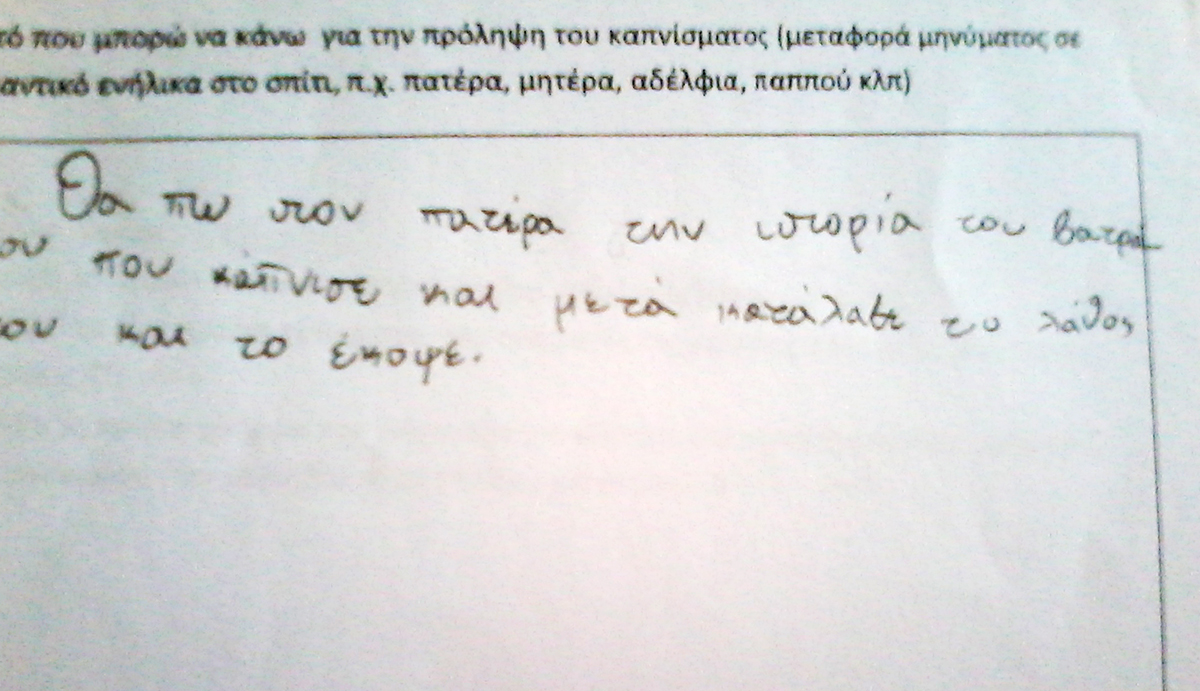 τό που μπορώ να κάνω για την πρόληψη του καπνίσματος (μεταφορά μηνύματος σε
αντικό ενήλικα στο σπίτι, π.χ. πατέρα, μητέρα, αδέλφια, παππού κλπ)
Θα πω στον πατέρα την ιστορία του βατρά
ου που κάπνισε και μετά κατάλαβε το λάθος
του και το έκοψε.